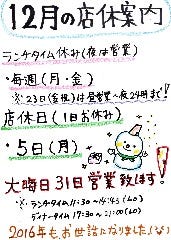 12月の店休案内
ランチタイム休み(夜は営業)
・毎週(月・金)
※・23日(金・祝)は昼営業〜夜24時まで!
店休日(1日お休み)
・5日(月)
大晦日31日営業致します!
※・ランチタイム11:30〜14:45(LO)
ディナータイム17:30〜21:00(LO)
2016年もお世話になりました(^^)